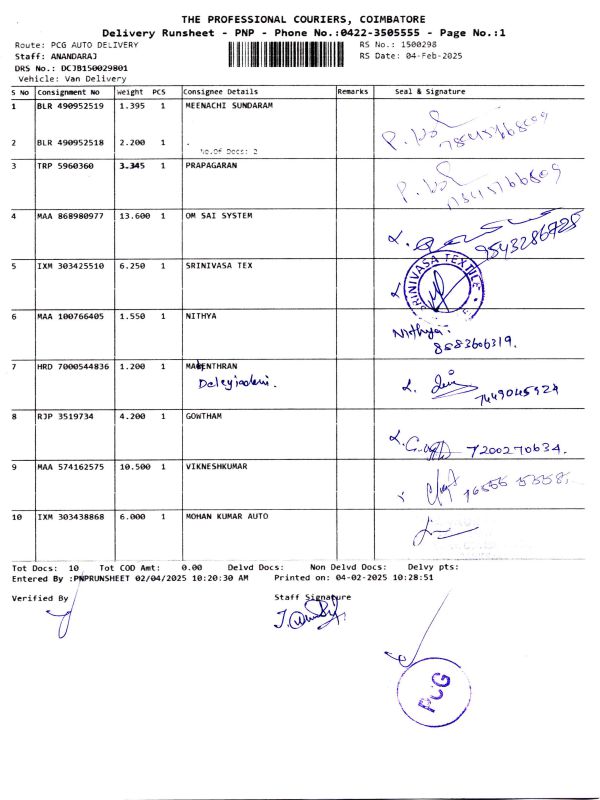 THE PROFESSIONAL COURIERS, COIMBATORE
Delivery Runsheet - PNP - Phone No.:0422-3505555 - Page No.:1
Route: PCG AUTO DELIVERY RS No.: 1500298
Staff: ANANDARAJ RS Date: 04-Feb-2025
DRS No.: DCJB150029801
Vehicle: Van Delivery
S No Consignment No Weight PCS Consignee Details Remarks Seal & Signature
1 BLR 490952519 1.395 1 MEENACHI SUNDARAM
2 BLR 490952518 2.200 1 .
No.Of Docs: 2
3 TRP 5960360 3.345 1 PRAPAGARAN
4 MAA 868980977 13.600 1 OM SAI SYSTEM
9543286728
5 IXM 303425510 6.250 1 SRINIVASA TEX
SRINIVASA TEXTILE
6 MAA 100766405 1.550 1 NITHYA
Nithya
8883606319.
7 HRD 7000544836 1.200 1
7449045924
8 RJP 3519734 4.200 1 GOWTHAM
7200270634.
9 MAA 574162575 10.500 1 VIKNESHKUMAR
10 IXM 303438868 6.000 1 MOHAN KUMAR AUTO
Tot Docs: 10 Tot COD Amt: 0.00 Delvd Docs: Non Delvd Docs: Delvy pts:
Entered By :PNPRUNSHEET 02/04/2025 10:20:30 AM Printed on: 04-02-2025 10:28:51
Verified By Staff Signature
PCG